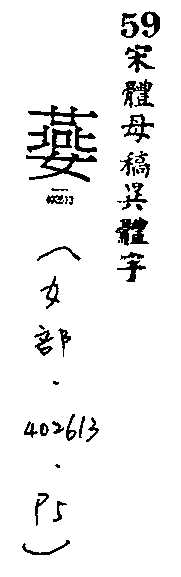 59宋體母稿異體字
402613
(女部.402613.P5)